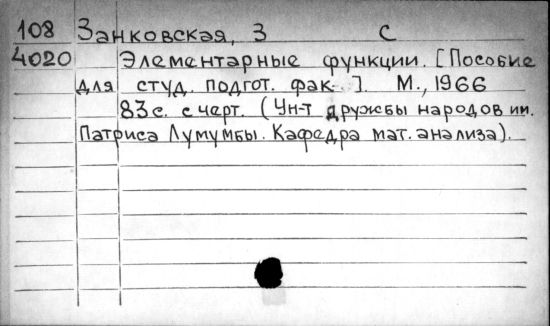 108 Занковская, З С
4020 Элементарные функции. [Пособие
для студ. подгот. фак. ]. М., 1966
83с. с черт. (Ун-т дружбы народов им.
Патриса Лумумбы. Кафедра мат. анализа).